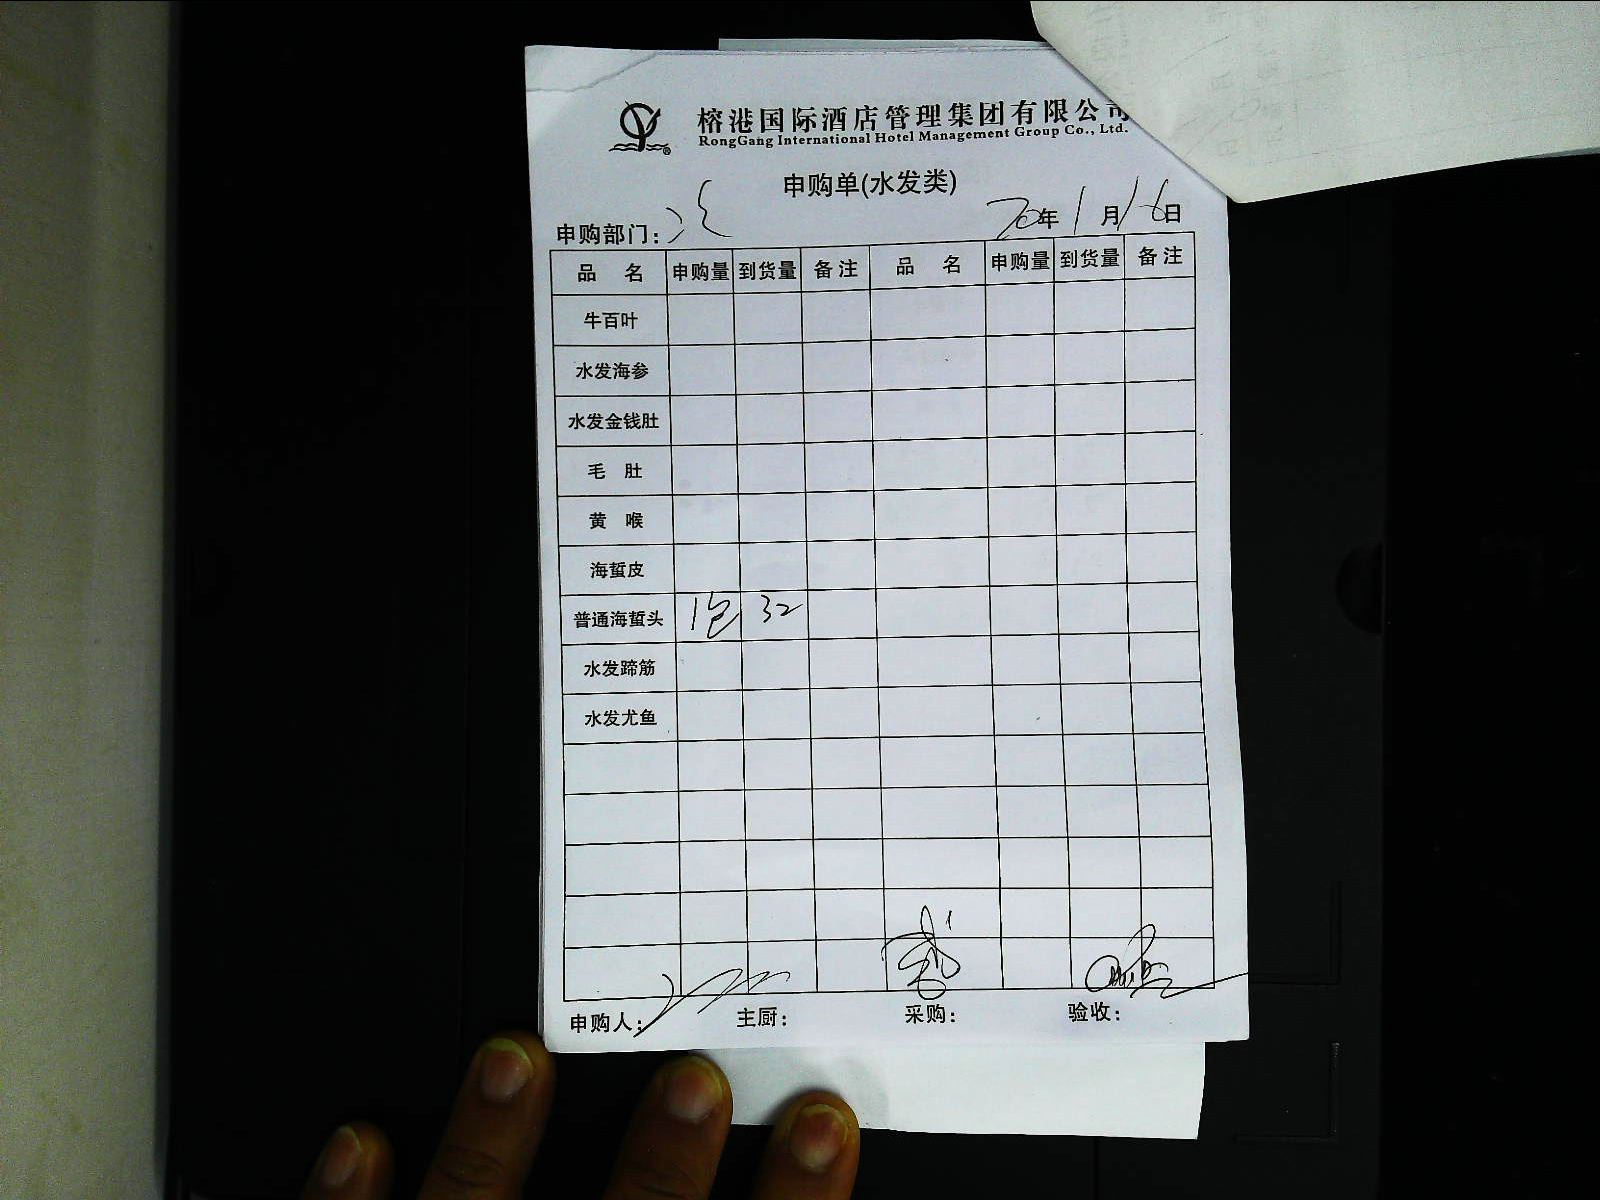 榕港国际酒店管理集团有限公司
RongGang International Hotel Management Group Co., Ltd.
申购单(水发类)
申购部门: 20年1月16日
品 名 申购量 到货量 备注 品 名 申购量 到货量 备注
牛百叶
水发海参
水发金钱肚
毛 肚
黄 喉
海蜇皮
普通海蜇头 1包 32
水发蹄筋
水发尤鱼
申购人: 主厨: 采购: 验收: